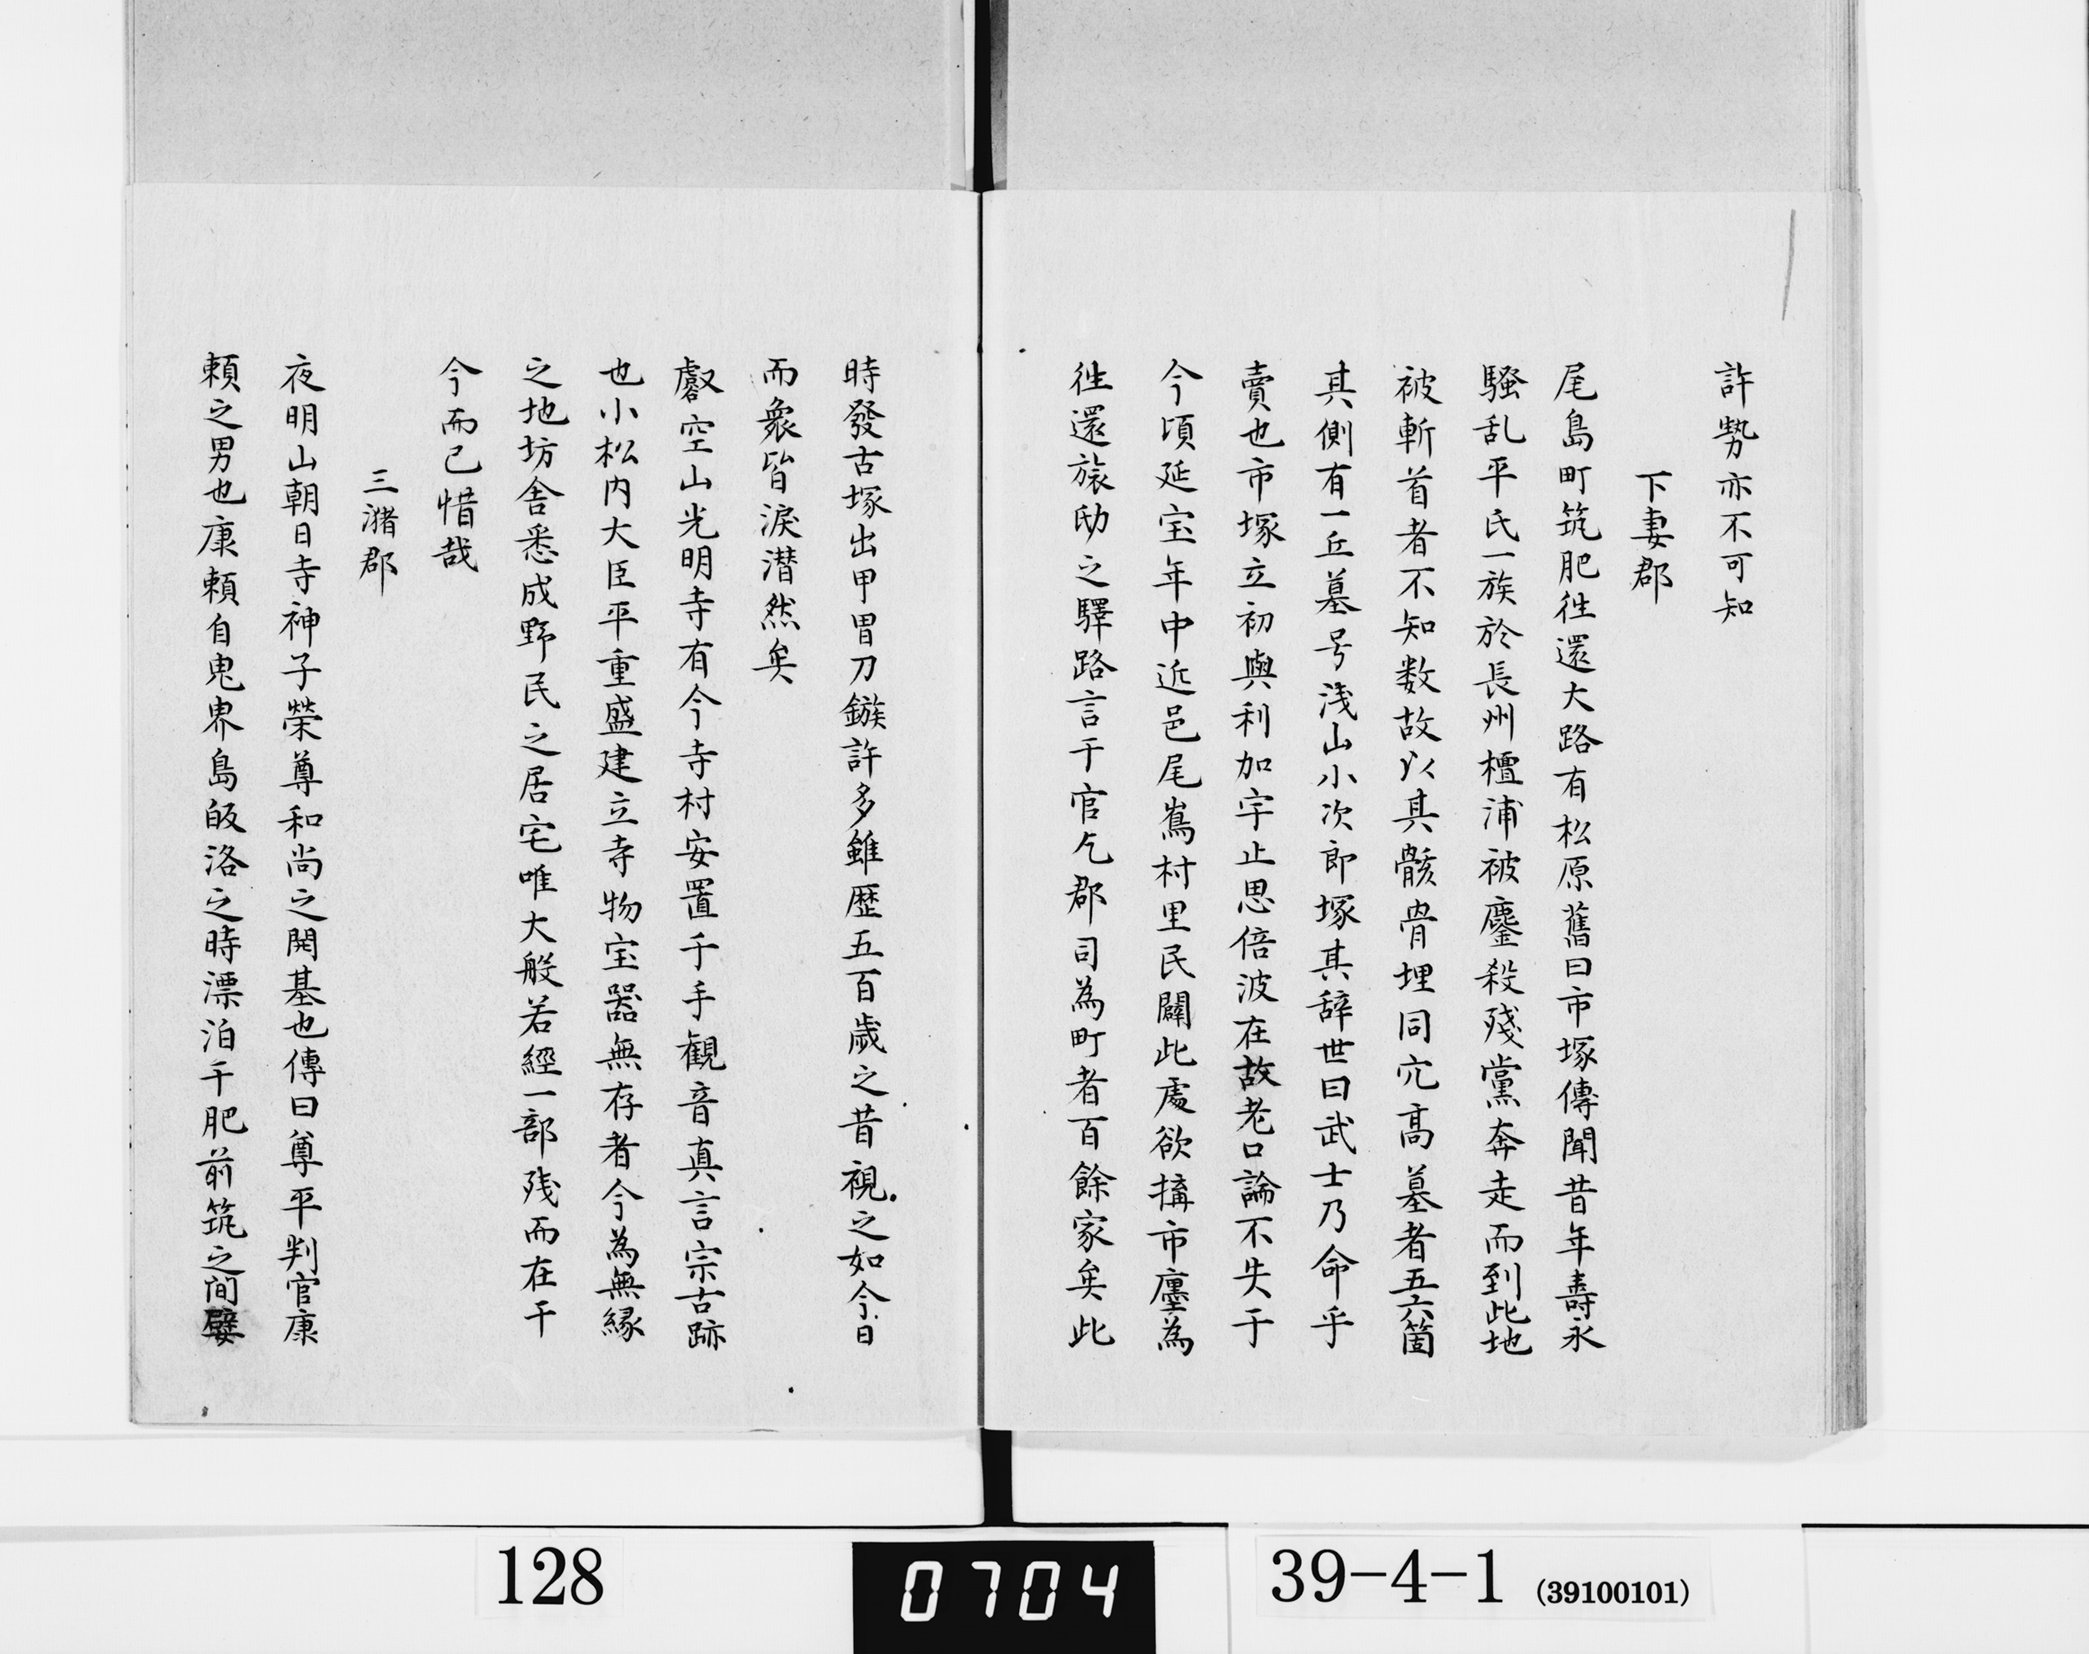 許勢亦不可知
下妻郡
尾島町筑肥徃還大路有松原舊曰市塚傳聞昔年壽永
騒乱平氏一族於長州檀浦被鏖殺殘黨奔走而到此地
被斬首者不知数故以其骸骨埋同穴高墓者五六箇
其側有一丘墓号浅山小次郎塚其辞世曰武士乃命乎
賣也市塚立初與利加宇止思倍波在故老口論不失于
今頃延宝年中近邑尾嶌村里民闢此處欲搆市廛為
徃還旅邸之驛路言于官乞郡司為町者百餘家矣此
時發古塚出甲冑刀鏃許多雖歴五百歳之昔視之如今日
而衆皆涙潸然矣
空山光明寺有今寺村安置千手観音真言宗古跡
也小松内大臣平重盛建立寺物宝器無存者今為無縁
之地坊舎悉成野民之居宅唯大般若經一部残而在于
今而已惜哉
三潴郡
夜明山朝日寺神子榮尊和尚之開基也傳曰尊平判官康
頼之男也康頼自鬼界島皈洛之時漂泊于肥前筑之間嬖
128
0704
39-4-1 (39100101)